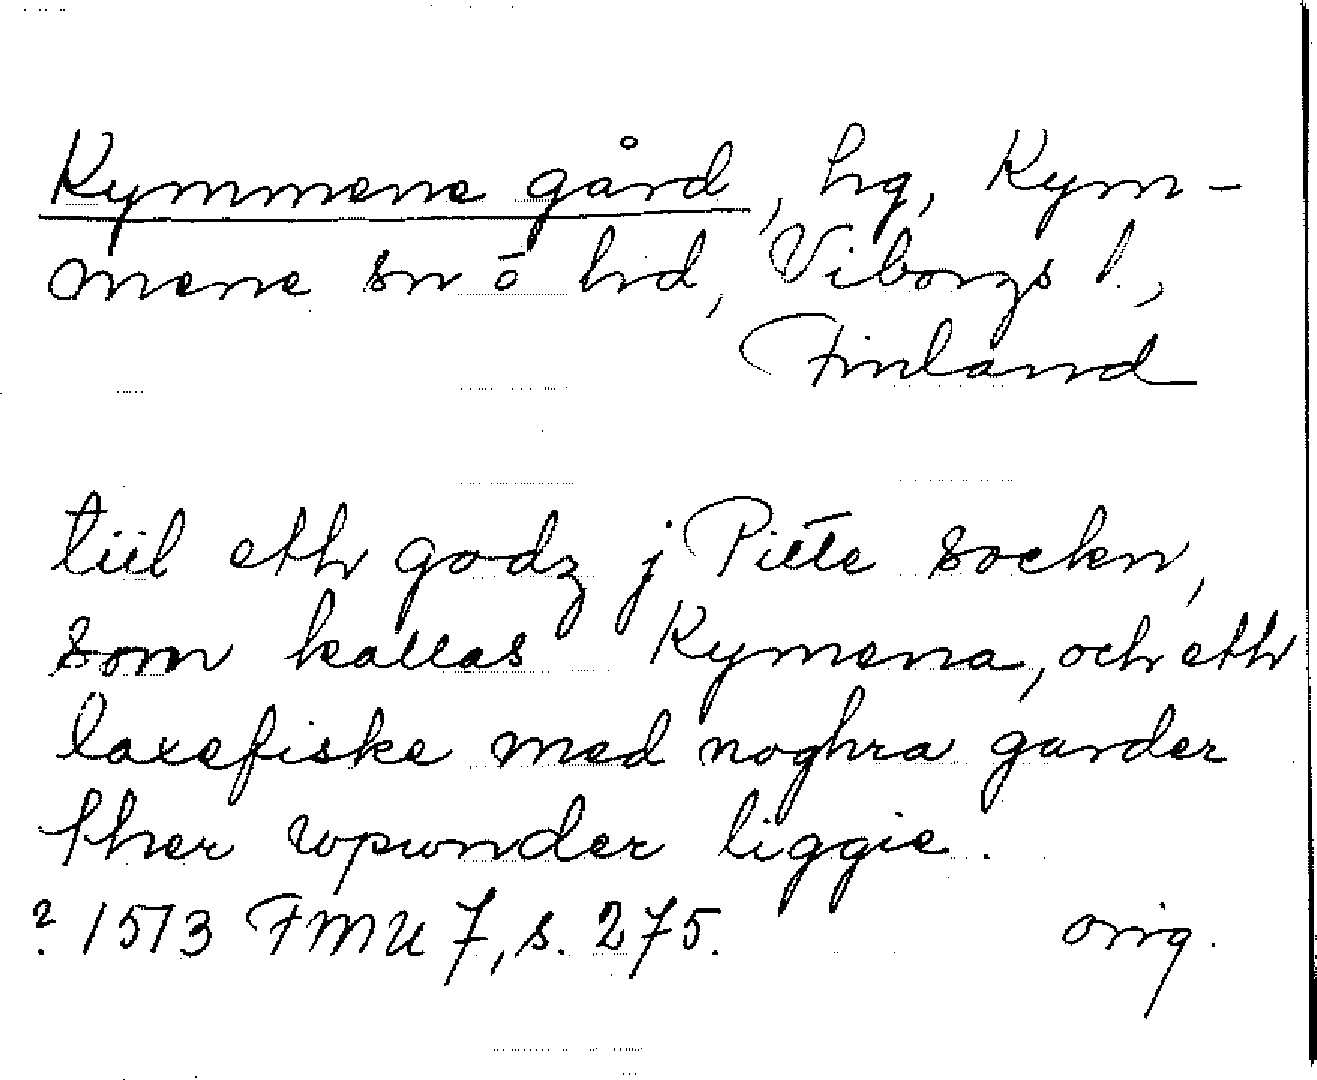 Kymmene gård, hg, Kym-
mene sn o hd, Viborgs l.,
Finland
tiil eth godz j Pitte sockn,
som kallas Kymena, och eth
laxefiske med noghra garder
ther wpwnder liggie.
? 1513 FMU 7, s. 275. orig.